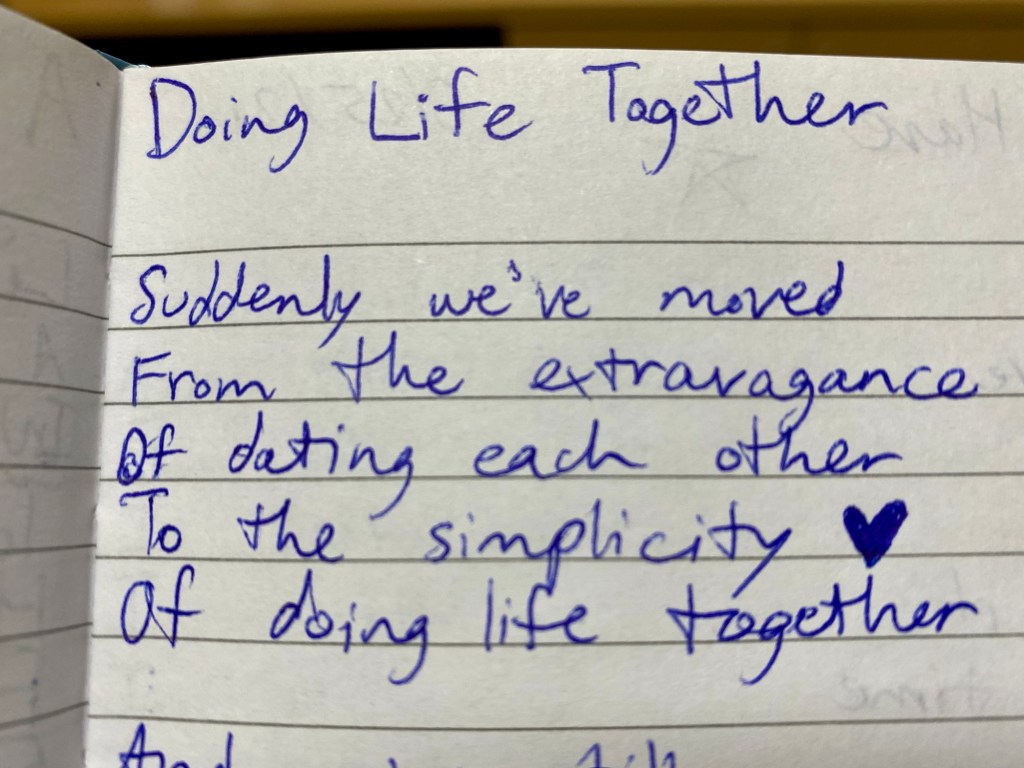 Doing Life Together
Suddenly we've moved
From the extravagance
Of dating each other
To the simplicity ♥
Of doing life together
And